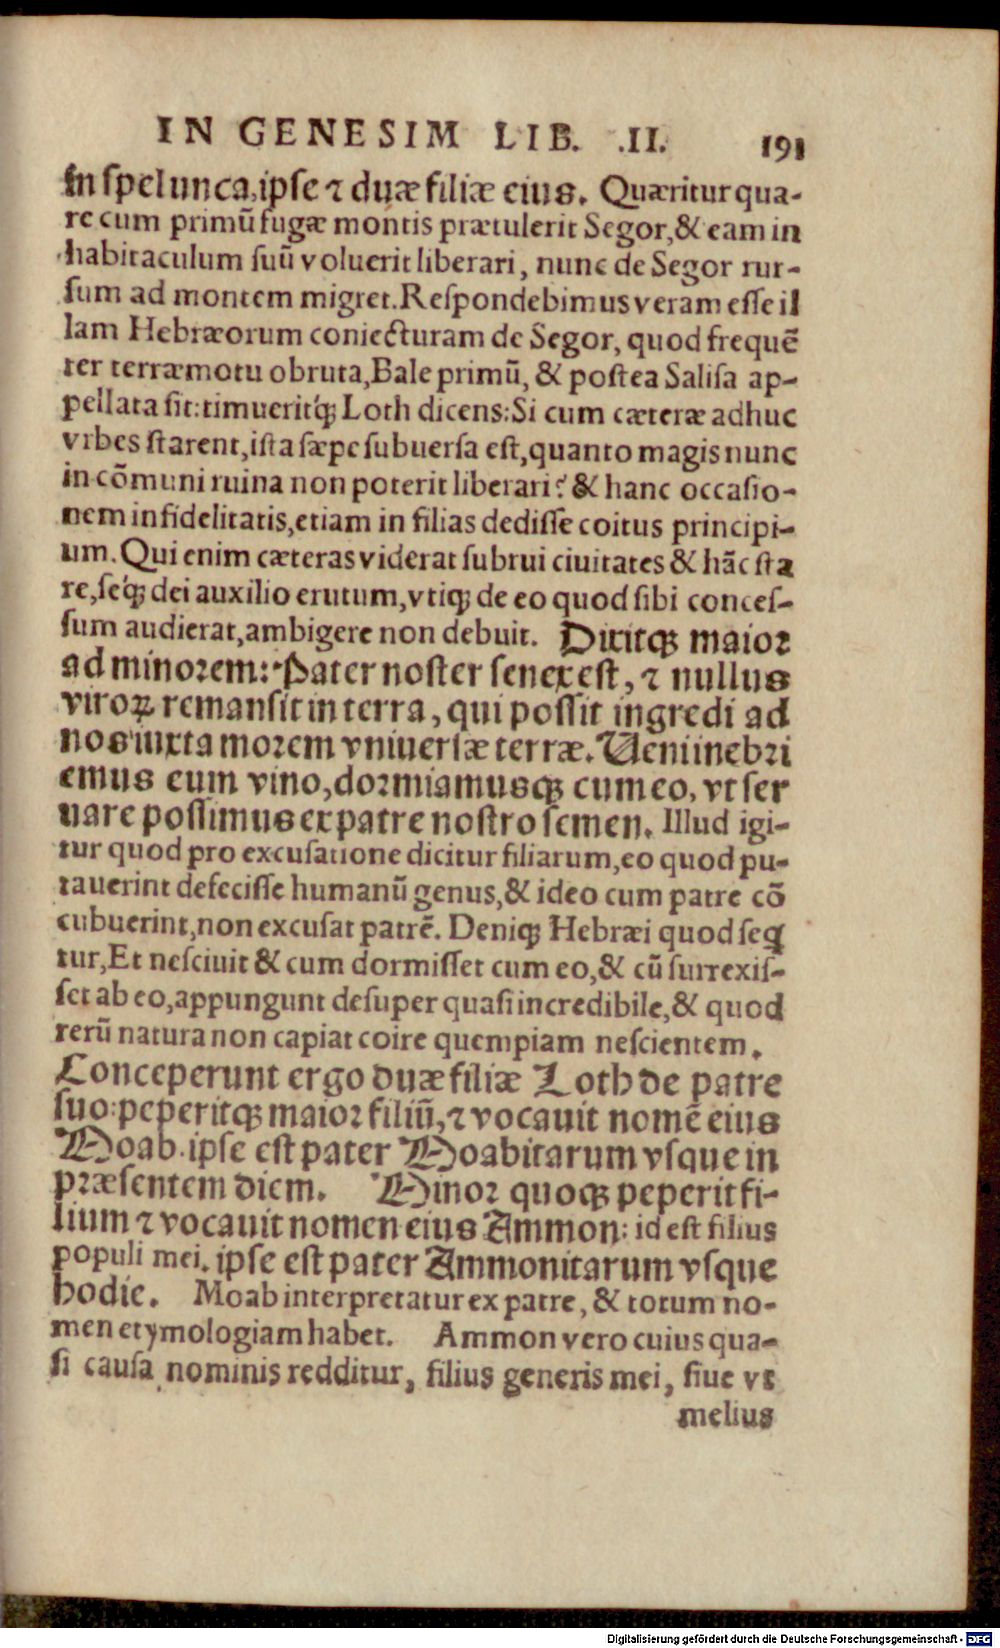 IN GENESIM LIB. .II. 191
in spelunca, ipſe ⁊ duæ filiæ eius. Quæritur qua-
re cum primũ fugæ montis prætulerit Segor, & eam in
habitaculum ſuũ voluerit liberari, nunc de Segor rur-
ſum ad montem migret. Reſpondebimus veram eſſe il
lam Hebræorum coniecturam de Segor, quod frequẽ
ter terræmotu obruta, Bale primũ, & poſtea Saliſa ap-
pellata ſit: timueritq́ꝫ Loth dicens: Si cum cæteræ adhuc
vrbes ſtarent, iſta ſæpe ſubuerſa eſt, quanto magis nunc
in cõmuni ruina non poterit liberari? & hanc occaſio-
nem infidelitatis, etiam in filias dediſſe coitus principi-
um. Qui enim cæteras viderat ſubrui ciuitates & hãc ſta
re, ſeq́ꝫ dei auxilio erutum, vtiqꝫ de eo quod ſibi conceſ-
ſum audierat, ambigere non debuit. Dixitqꝫ maior
ad minorem: Pater noſter ſenex eſt, ⁊ nullus
viroꝝ remanſit in terra, qui poſſit ingredi ad
nos iuxta morem vniuerſæ terræ. Ueni inebri
emus eum vino, dormiamusqꝫ cum eo, vt ſer
uare poſſimus ex patre noſtro ſemen. Illud igi-
tur quod pro excuſatione dicitur filiarum, eo quod pu-
tauerint defeciſſe humanũ genus, & ideo cum patre cõ
cubuerint, non excuſat patrẽ. Deniqꝫ Hebræi quod ſeq̃
tur, Et neſciuit & cum dormiſſet cum eo, & cũ ſurrexiſ-
ſet ab eo, appungunt deſuper quaſi incredibile, & quod
rerũ natura non capiat coire quempiam neſcientem.
Conceperunt ergo duæ filiæ Loth de patre
ſuo: peperitqꝫ maior filiũ, ⁊ vocauit nomẽ eius
Moab. ipſe eſt pater Moabitarum vſque in
præſentem diem. Minor quoqꝫ peperit fi-
lium ⁊ vocauit nomen eius Ammon: id eſt filius
populi mei. ipſe eſt pater Ammonitarum vſque
hodie. Moab interpretatur ex patre, & totum no-
men etymologiam habet. Ammon vero cuius qua-
ſi cauſa nominis redditur, filius generis mei, ſiue vt
melius
Digitalisierung gefördert durch die Deutsche Forschungsgemeinschaft - DFG